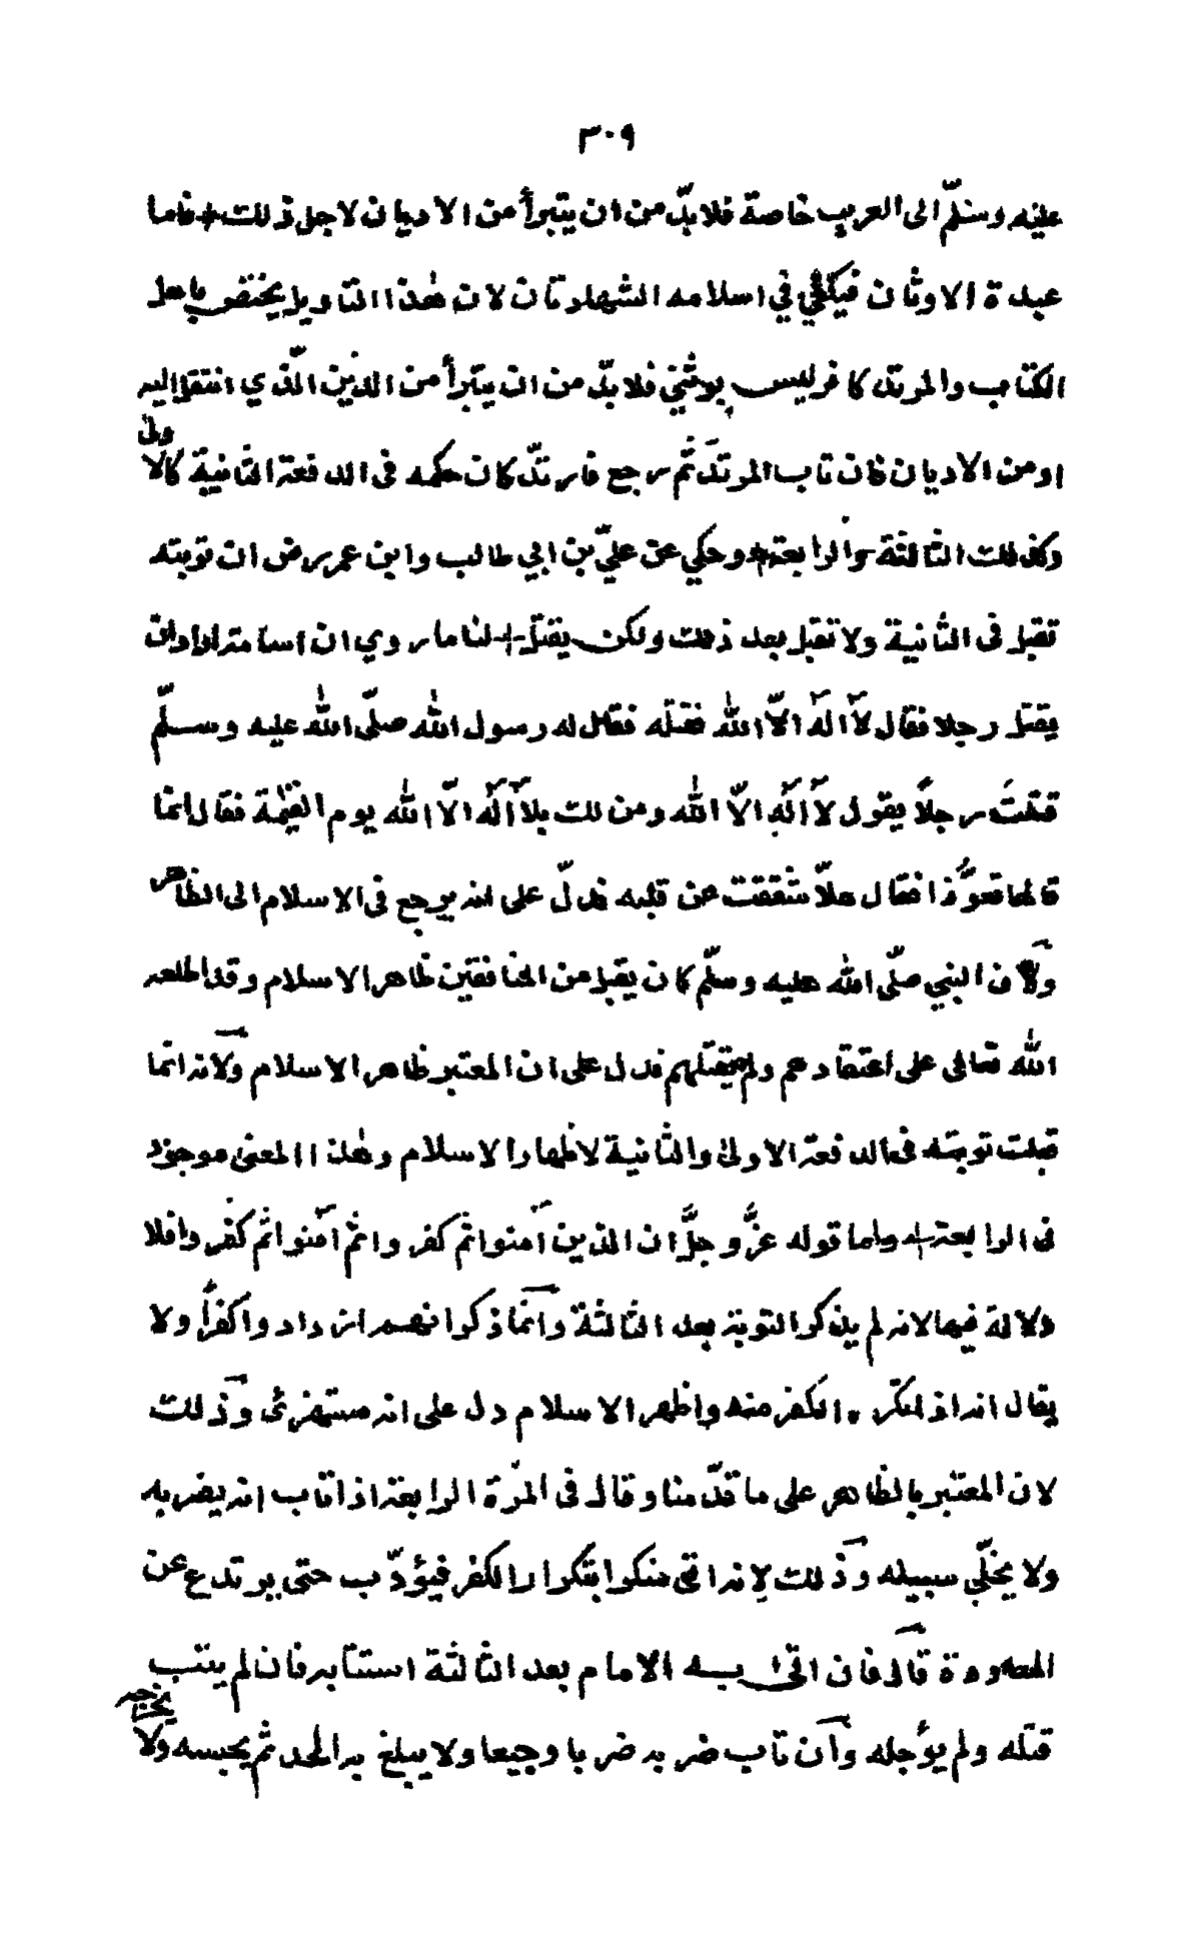 ٣٠٩
عليه وسلّم الى العرب خاصة فلا بدّ من ان يتبرأ من الاديان لاجل ذلك فاما
عبدة الاوثان فيكفي في اسلامه الشهادتان لان هٰذا التاويل يختص باهل
الكتاب والمرتد كافر ليس بوثني فلا بدّ من ان يتبرأ من الدين الّذي انتقل اليه
او من الاديان فان تاب المرتد ثم رجع فارتدّ كان حكمه فى الدفعة الثانية كالاولى
وكذلك الثالثة والرابعة وحكي عن عليّ بن ابي طالب وابن عمر رض ان توبته
تقبل فى الثانية ولا تقبل بعد ذلك ولكن يقتل لنا ما روي ان اسامة اراد ان
يقتل رجلا فقال لآ الٰه الّا الله فقتله فقال له رسول الله صلّى الله عليه وسلّم
قتلتَ رجلاً يقول لآ الٰه الّا الله ومن لك بلآ الٰه الّا الله يوم القيٰمة فقال انما
قالها تعوّذا فقال هلّا شققت عن قلبه فدلّ على انه يرجع فى الاسلام الى الظاهر
ولان النبي صلّى الله عليه وسلّم كان يقبل من المنافقين ظاهر الاسلام وقد اطلعه
الله تعالى على اعتقادهم ولم يقتلهم فدل على ان المعتبر ظاهر الاسلام ولانه انما
قبلت توبته فى الدفعة الاولىٰ والثانية لاظهار الاسلام وهٰذا المعنى موجود
فى الرابعة واما قوله عزّ وجلّ ان الذين آمنوا ثم كفروا ثم آمنوا ثم كفروا فلا
دلالة فيها لانه لم يذكر التوبة بعد الثالثة وانما ذكر انهم ازدادوا كفراً ولا
يقال انه اذ تكرر الكفر منه واظهر الاسلام دل على انه مستهزئ وذلك
لان المعتبر بالظاهر على ما قدّمنا وقال فى المرّة الرابعة اذا تاب انه يضربه
ولا يخلّي سبيله وذلك لانه اتى منكرا بتكرار الكفر فيؤدّب حتى يرتدع عن
المعاودة قال فان اتى به الامام بعد الثالثة استتابه فان لم يتب
قتله ولم يؤجله وان تاب ضربه ضربا وجيعا ولا يبلغ به الحد ثم يحبسه ولا يخرجه